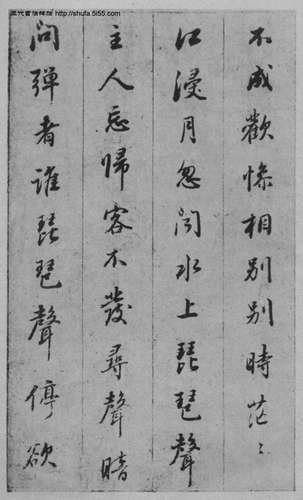 http://shufa.5i55.com
不成歡慘相別別時茫〻
江浸月忽聞水上琵琶聲
主人忘歸客不發尋聲暗
問彈者誰琵琶聲停欲